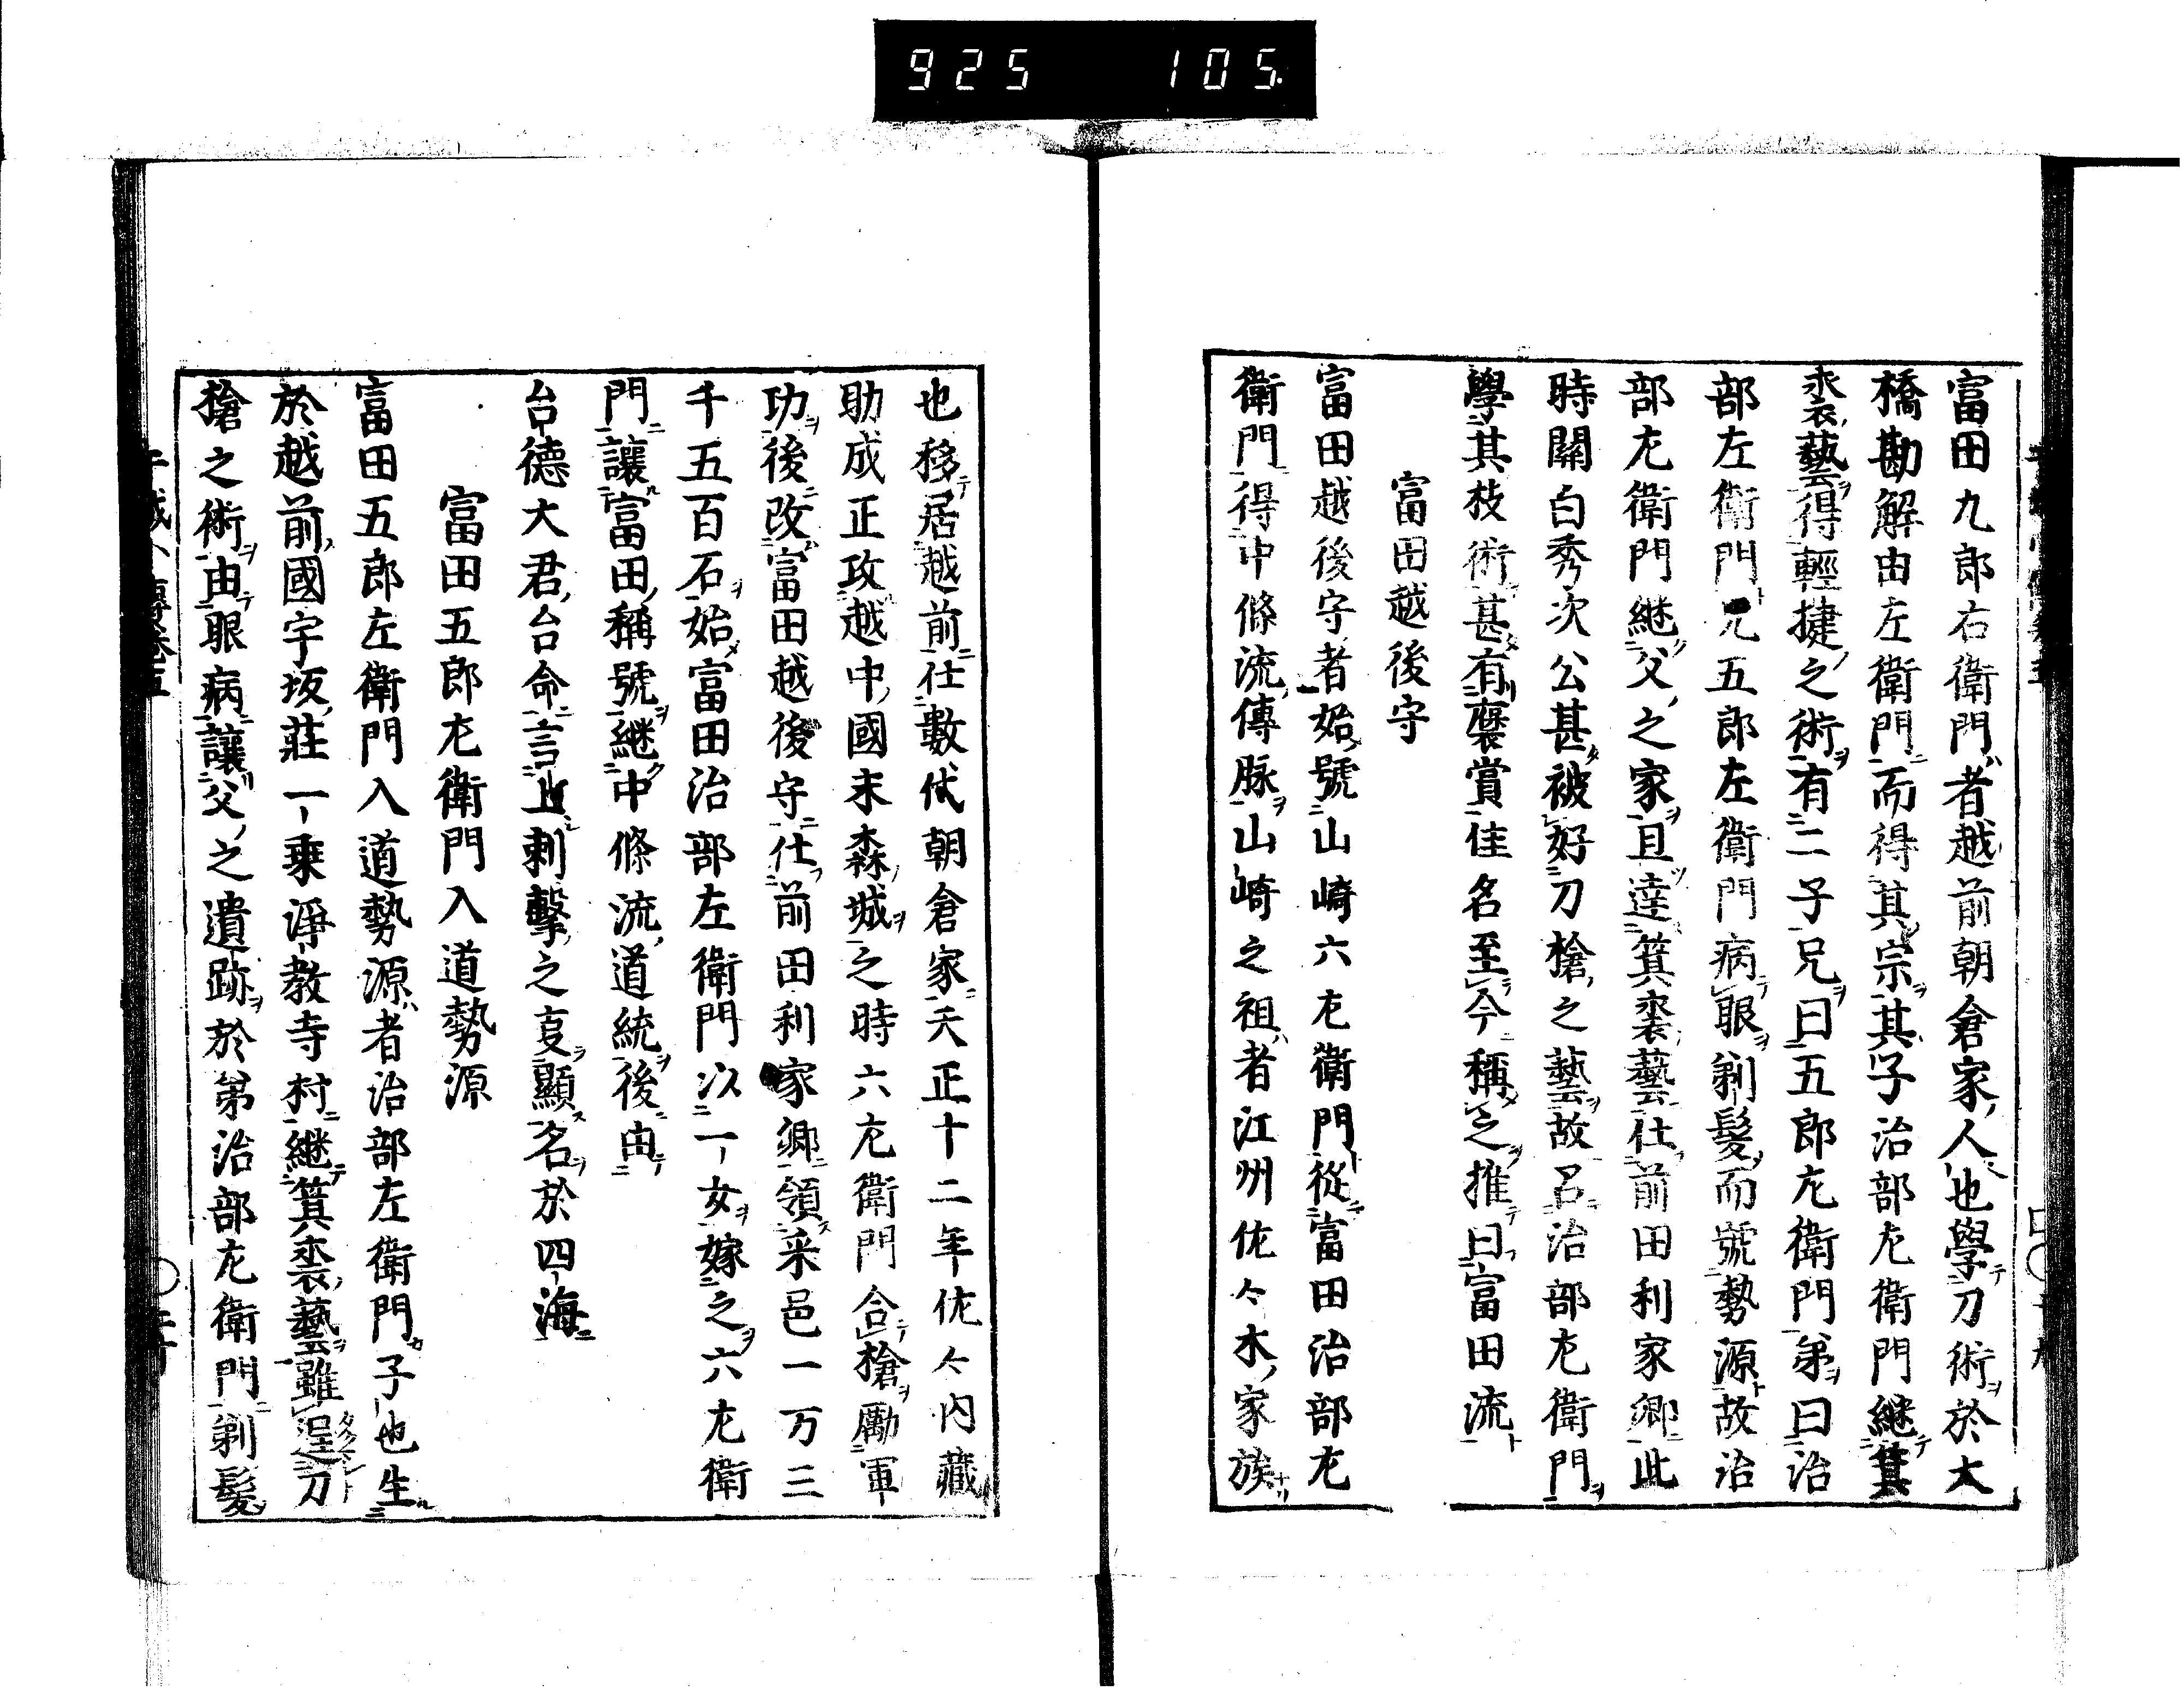 925 105
富田九郎右衛門者越前朝倉家人也學刀術於大
橋勘解由左衛門而得其宗其子治部左衛門継箕
裘藝得輕捷之術有二子兄曰五郎左衛門弟曰治
部左衛門兄五郎左衛門病眼剃髮而號勢源故治
部左衛門継父之家且達箕裘藝仕前田利家卿此
時關白秀次公甚被好刀槍之藝故召治部左衛門
學其技術甚有褒賞佳名至今稱之推曰富田流
富田越後守
富田越後守者始號山崎六左衛門從富田治部左
衛門得中條流傳脉山崎之祖者江州佐々木家族
也移居越前仕數代朝倉家天正十二年佐々内藏
助成正攻越中國末森城之時六左衛門合槍勵軍
功後改富田越後守仕前田利家卿領采邑一万三
千五百石始富田治部左衛門以一女嫁之六左衛
門讓富田稱號継中條流道統後由
台德大君台命言上刺擊之㕝顯名於四海
富田五郎左衛門入道勢源
富田五郎左衛門入道勢源者治部左衛門子也生
於越前國宇坂莊一乗淨教寺村継箕裘藝雖逞刀
槍之術由眼病讓父之遺跡於弟治部左衛門剃髮